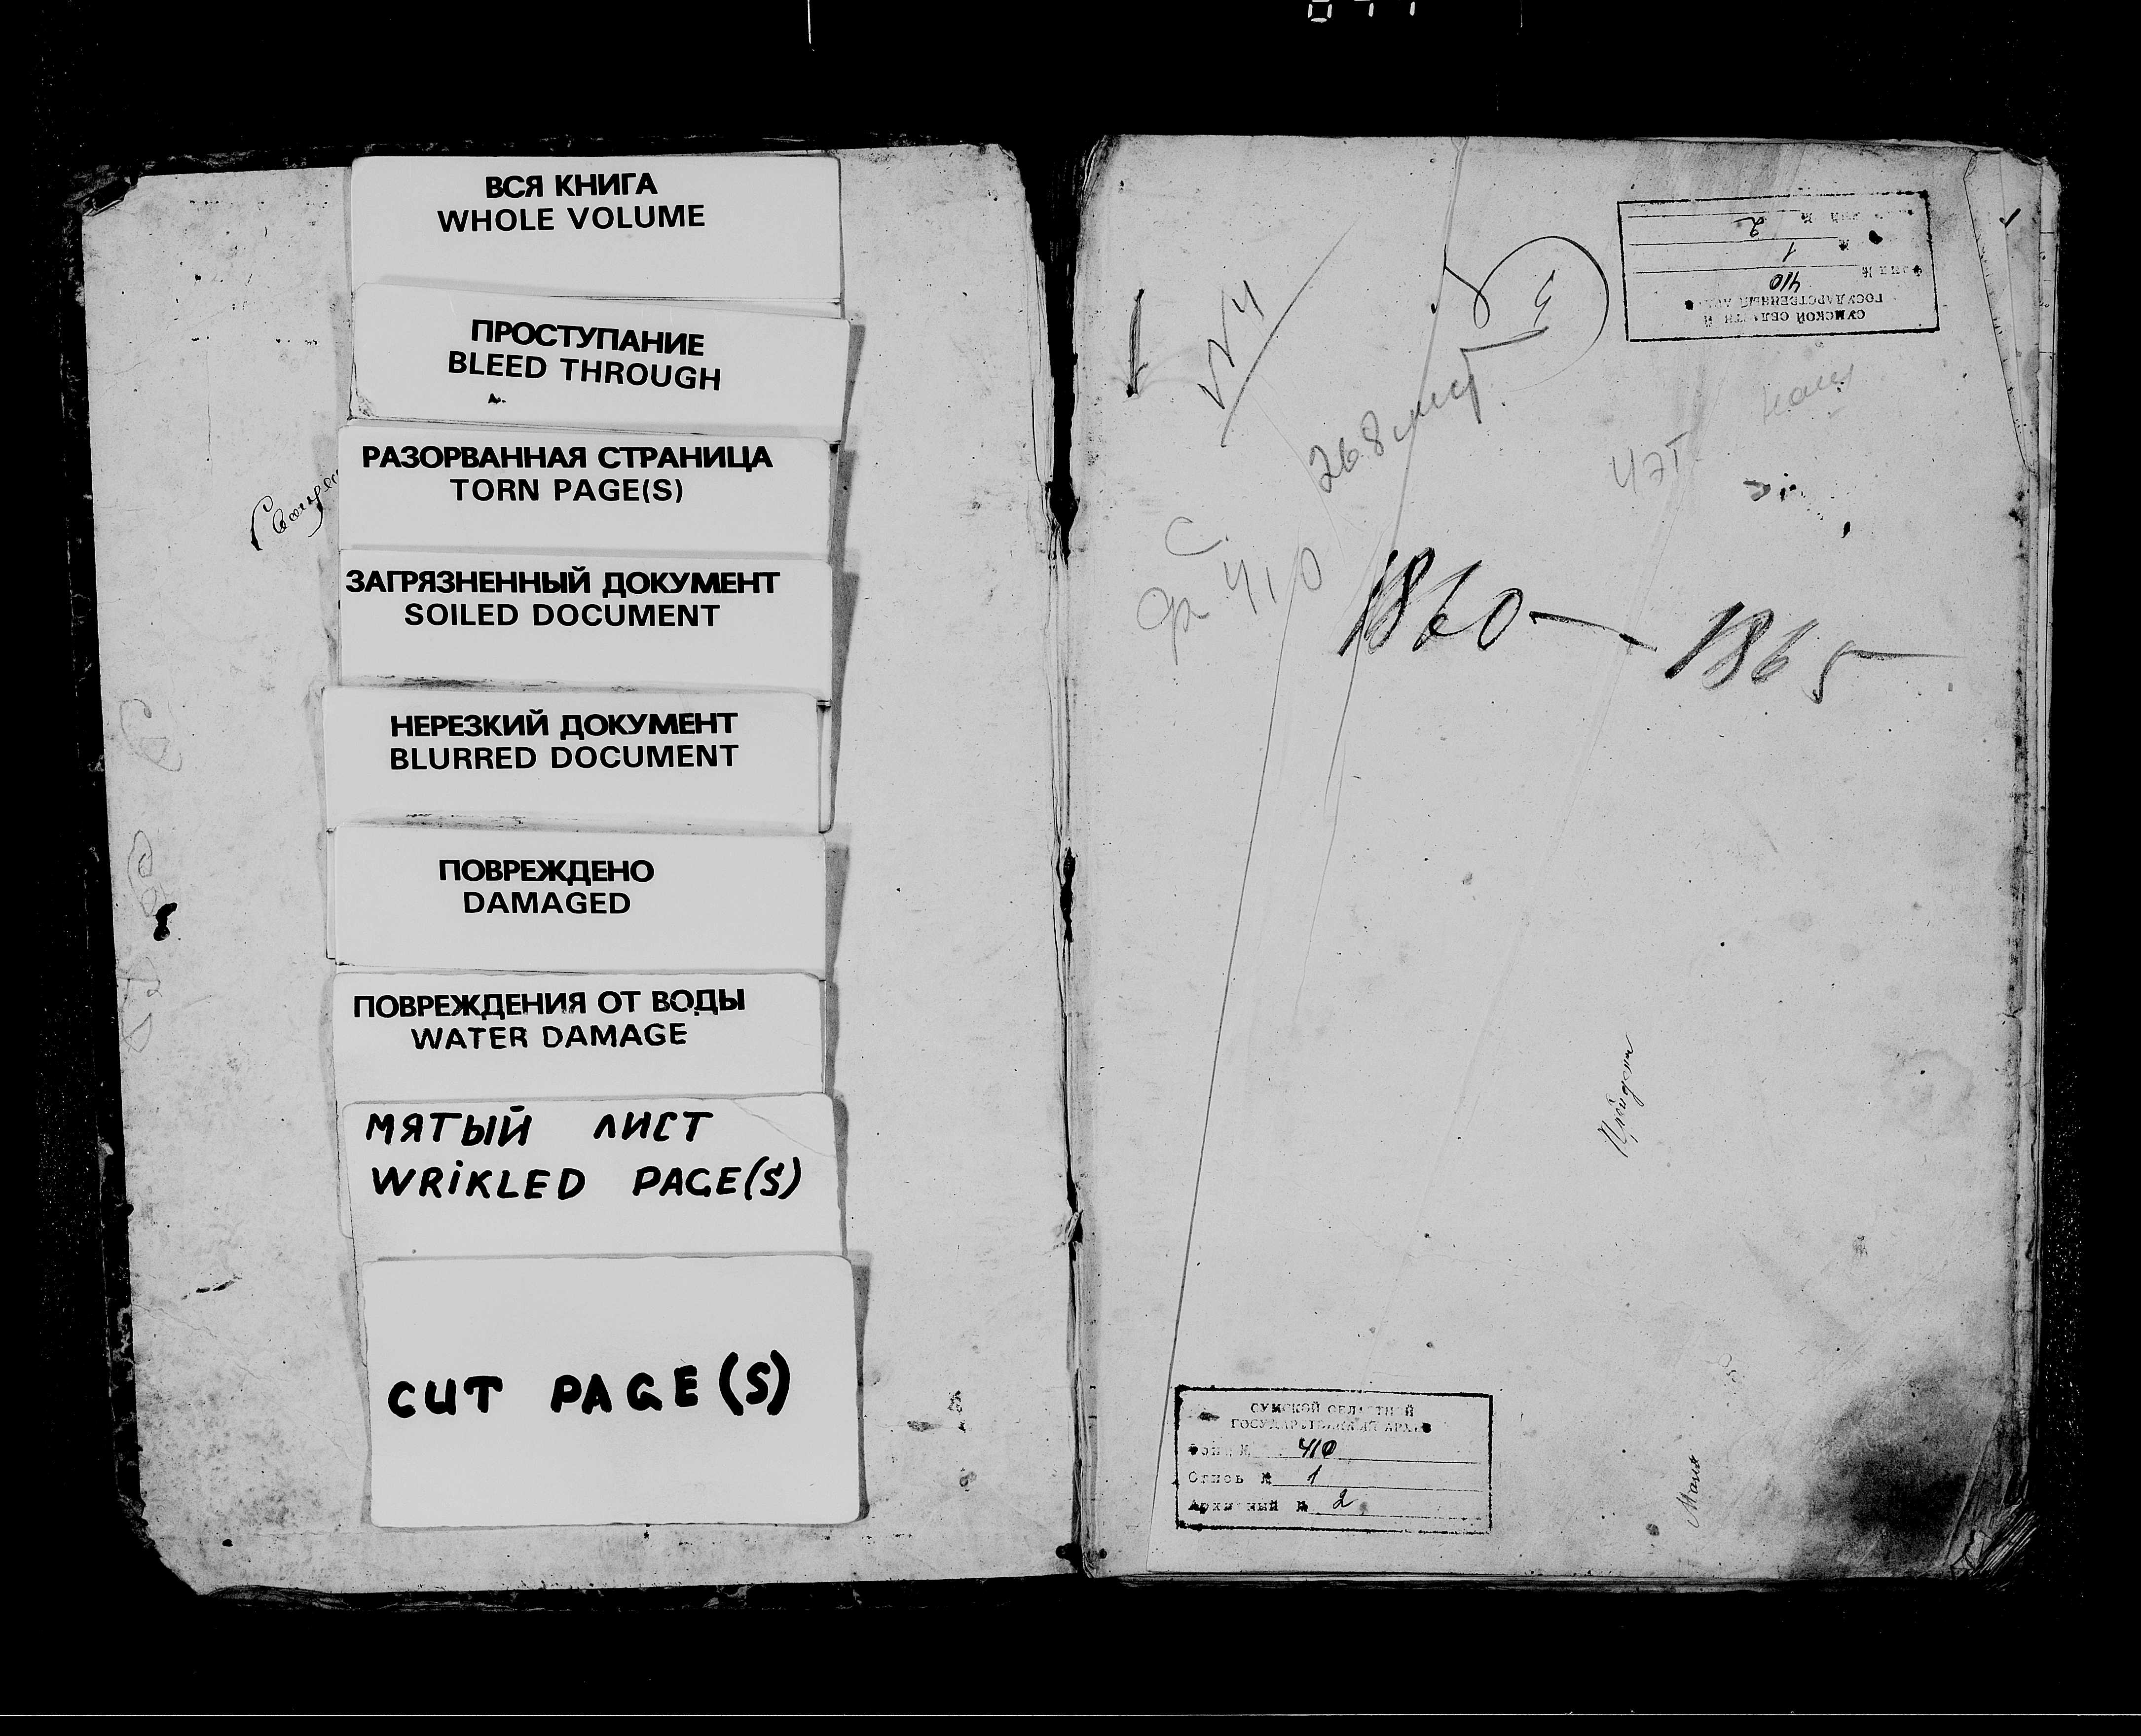 ВСЯ КНИГА
WHOLE VOLUME
ПРОСТУПАНИЕ
BLEED THROUGH
РАЗОРВАННАЯ СТРАНИЦА
TORN PAGE(S)
ЗАГРЯЗНЕННЫЙ ДОКУМЕНТ
SOILED DOCUMENT
НЕРЕЗКИЙ ДОКУМЕНТ
BLURRED DOCUMENT
ПОВРЕЖДЕНО
DAMAGED
ПОВРЕЖДЕНИЯ ОТ ВОДЫ
WATER DAMAGE
МЯТЫЙ ЛИСТ
WRIKLED PAGE(S)
CUT PAGE(S)
СУМСКОЙ ОБЛАСТНОЙ
ГОСУДАРСТВЕННЫЙ АРХИВ
Фонд № 410
№ 1
№ 2
№4
268 лист
С
ф 410
1860 — 1865
СУМСКОЙ ОБЛАСТНОЙ
ГОСУДАРСТВЕННЫЙ АРХИВ
Фонд № 410
Опись № 1
Архивный № 2